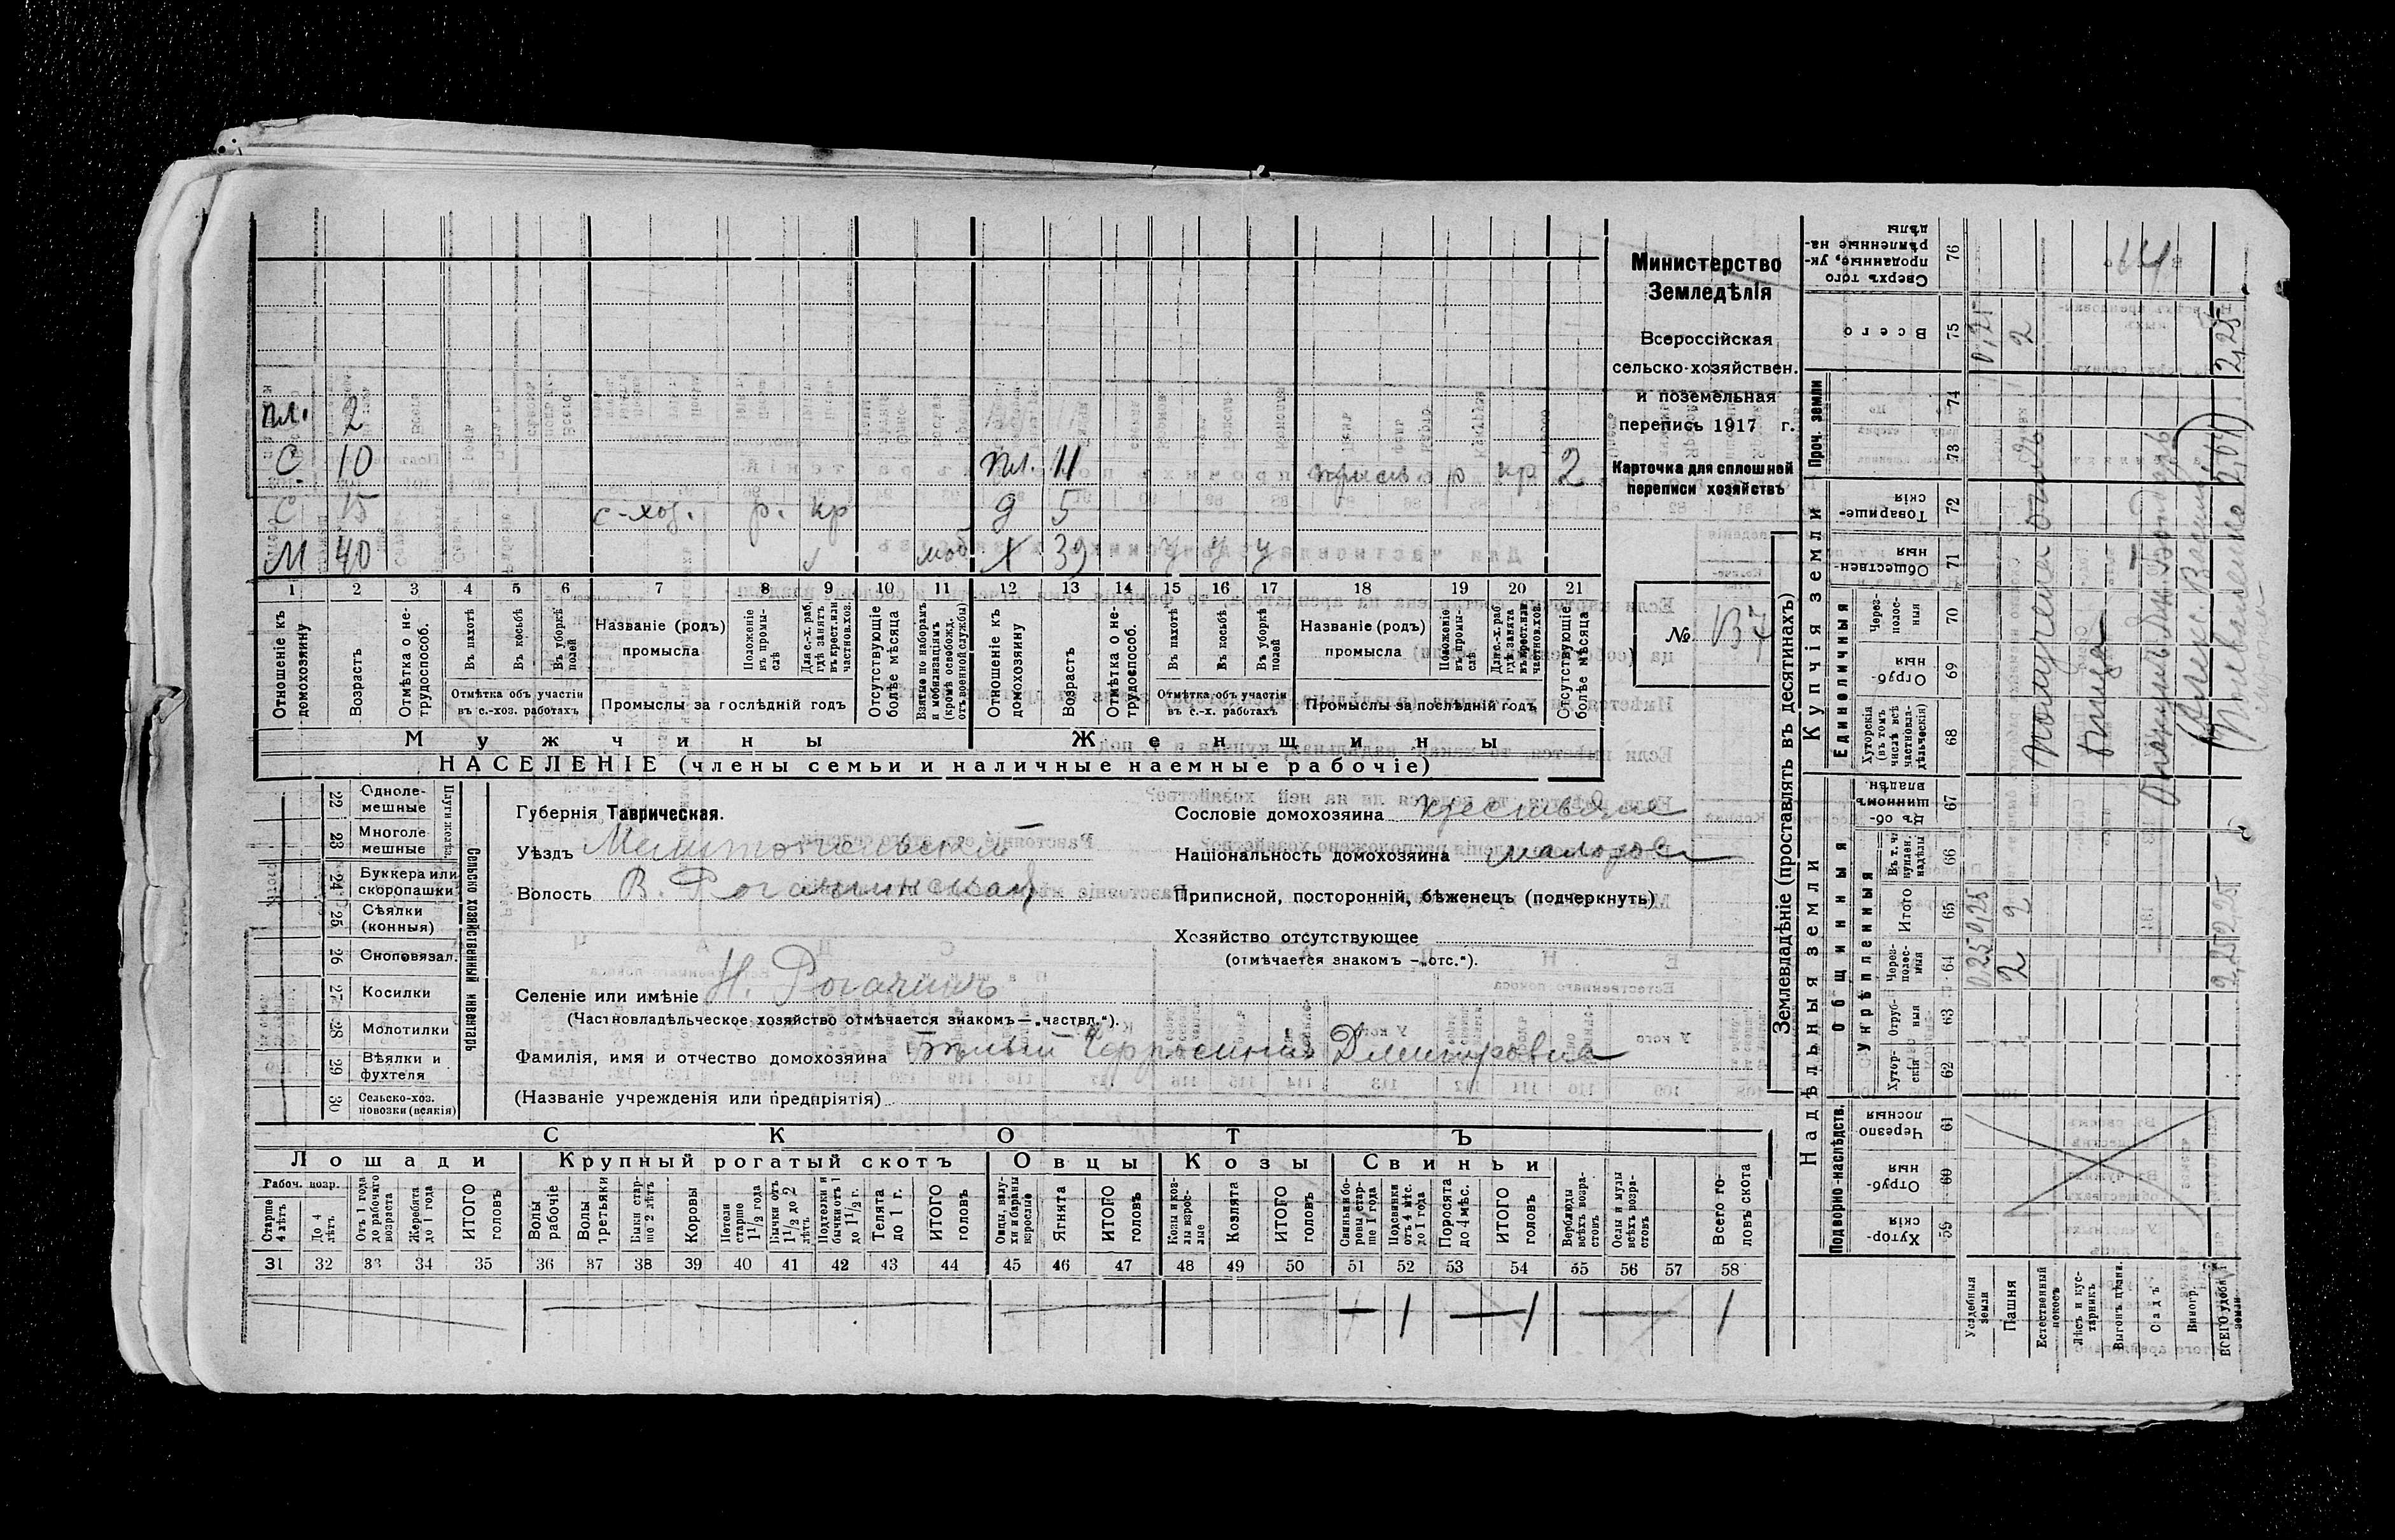 Министерство
Земледѣлія
Всероссійская
сельско-хозяйствен.
и поземельная
перепись 1917 г.
Карточка для сплошной
переписи хозяйствъ
№ 137
пл. 2
С. 10 пл. 11 р кр 2
С 15 с-хоз. р. кр д 5
М 40 моб х 39 у у у
1 2 3 4 5 6 7 8 9 10 11 12 13 14 15 16 17 18 19 20 21
Отношеніе къ домохозяину
Возрастъ
Отмѣтка о не-трудоспособ.
Въ пахотѣ
Въ косьбѣ
Въ уборкѣ полей
Отмѣтка объ участіи въ с.-хоз. работахъ
Названіе (родъ) промысла
Положеніе въ промы-слѣ
Для с.-х. раб. гдѣ занятъ въ крест. или частнов. хоз.
Промыслы за послѣдній годъ
Отсутствующіе болѣе мѣсяца
Взятые по наборамъ и мобилизаціямъ (кромѣ освобожд. отъ военной службы)
Отношеніе къ домохозяину
Возрастъ
Отмѣтка о не-трудоспособ.
Въ пахотѣ
Въ косьбѣ
Въ уборкѣ полей
Отмѣтка объ участіи въ с.-х. работахъ
Названіе (родъ) промысла
Положеніе въ промы-слѣ
Для с.-х. раб. гдѣ занята въ крест. или частнов. хоз.
Промыслы за послѣдній годъ
Отсутствующіе болѣе мѣсяца
Мужчины Женщины
НАСЕЛЕНІЕ (члены семьи и наличные наемные рабочіе)
Сельско хозяйственный инвентарь
Плуги желѣз.
22 Одноле-мешные
23 Многоле мешные
24 Буккера или скоропашки
25 Сѣялки (конныя)
26 Сноповязал.
27 Косилки
28 Молотилки
29 Вѣялки и фухтеля
30 Сельско-хоз. повозки (всякія)
Губернія Таврическая.
Уѣздъ Мелитопольскій
Волость В. Рогачинская
Селеніе или имѣніе Н. Рогачикъ
(Частновладѣльческое хозяйство отмѣчается знакомъ—„частвл.“).
Фамилія, имя и отчество домохозяина Бѣлый Дмитровна
(Названіе учрежденія или предпріятія)
Сословіе домохозяина
Національность домохозяина малоросс
Приписной, посторонній, бѣженецъ (подчеркнуть)
Хозяйство отсутствующее
(отмѣчается знакомъ —„отс.“).
СКОТЪ
Лошади Крупный рогатый скотъ Овцы Козы Свиньи
Рабоч. возр.
Старше 4 лѣтъ
До 4 лѣтъ
Отъ 1 года до рабочаго возраста
Жеребята до 1 года
ИТОГО головъ
Волы рабочіе
Волы третьяки
Быки стар-ше 2 лѣтъ
Коровы
Нетели старше 1 1/2 года
Бычки отъ 1 1/2 до 2 лѣтъ
Подтелки и бычки отъ 1 до 1 1/2 г.
Телята до 1 г.
ИТОГО головъ
Овцы, валу-хи и бараны взрослые
Ягнята
ИТОГО головъ
Козы и коз-лы взрос-лые
Козлята
ИТОГО головъ
Свиньи и бо-ровы стар-ше 1 года
Подсвинки отъ 4 мѣс. до 1 года
Поросята до 4 мѣс.
ИТОГО головъ
Верблюды всѣхъ возра-стовъ
Ослы и мулы всѣхъ возра-стовъ
Всего го-ловъ скота
31 32 33 34 35 36 37 38 39 40 41 42 43 44 45 46 47 48 49 50 51 52 53 54 55 56 57 58
1 1 1
Землевладѣніе (проставлять въ десятинахъ)
Надѣльныя земли Купчія земли Проч. земли
Подворно-наслѣдств. Общинныя Единоличныя
Укрѣпленныя
59 Хутор-скія
60 Отруб-ныя
61 Черезпо лосныя
62 Хутор-скія
63 Отруб-ныя
64 Через-полос-ныя
65 Итого
66 Въ т. ч. куплен. надѣлы
67 Въ об-щинномъ владѣн.
68 Хуторскія (въ томъ числѣ всѣ частновла-дѣльческія)
69 Отруб-ныя
70 Через-полос-ныя
71 Обществен-ныя
72 Товарище-скія
73
74
75 Всего
76 Сверхъ того проданные, ук-рѣпленные на-дѣлы
Усадебныя земли 0,25 0,25 0,25
Пашня 2 2 2
Естественный покосъ
Лѣсъ и кус-тарникъ
Выгонъ цѣлин.
Садъ
Виногр.
ВСЕГО удобн. земли 2,25 2,25 2,25